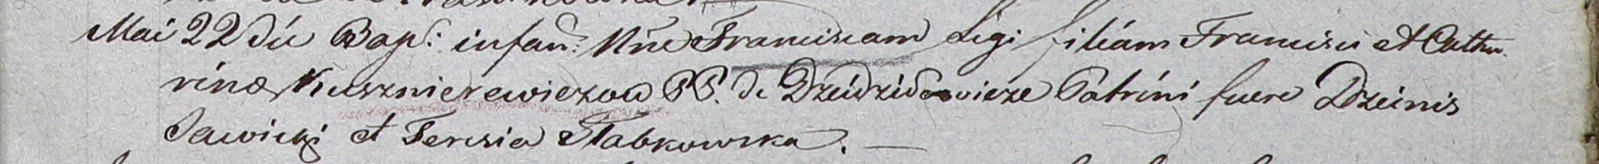 Mai 22 die Bap: infan: Nne Franciscam Legi filiam Francisci et Catha-
rinæ Kusznierewiczow PP. de Dzidzidowicze Patrini fuere Dzeinis
Sawicki et Teresia Slabkowska. —